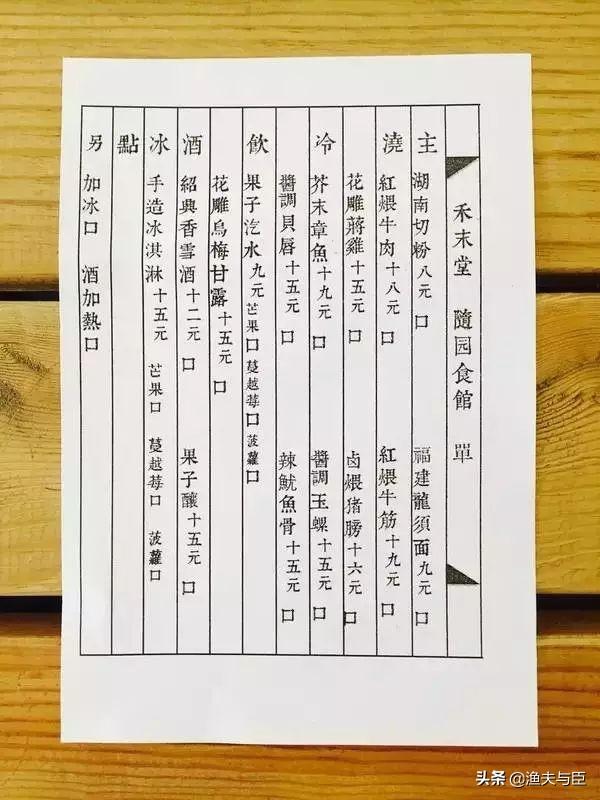 禾末堂 隨园食館 單
主 湖南切粉 八元 口 福建龍須面 九元 口
澆 紅煨牛肉 十八元 口 紅煨牛筋 十九元 口
花雕蔣雞 十五元 口 卤煨猪膀 十六元 口
冷 芥末章魚 十九元 口 醬調玉螺 十五元 口
醬調貝唇 十五元 口 辣魷魚骨 十五元 口
飲 果子汽水 九元 芒果口 蔓越莓口 菠蘿口
花雕烏梅甘露 十五元 口
酒 紹興香雪酒 十二元 口 果子釀 十五元 口
冰 手造冰淇淋 十五元 芒果口 蔓越莓口 菠蘿口
點
另 加冰口 酒加熱口
头条 @渔夫与臣